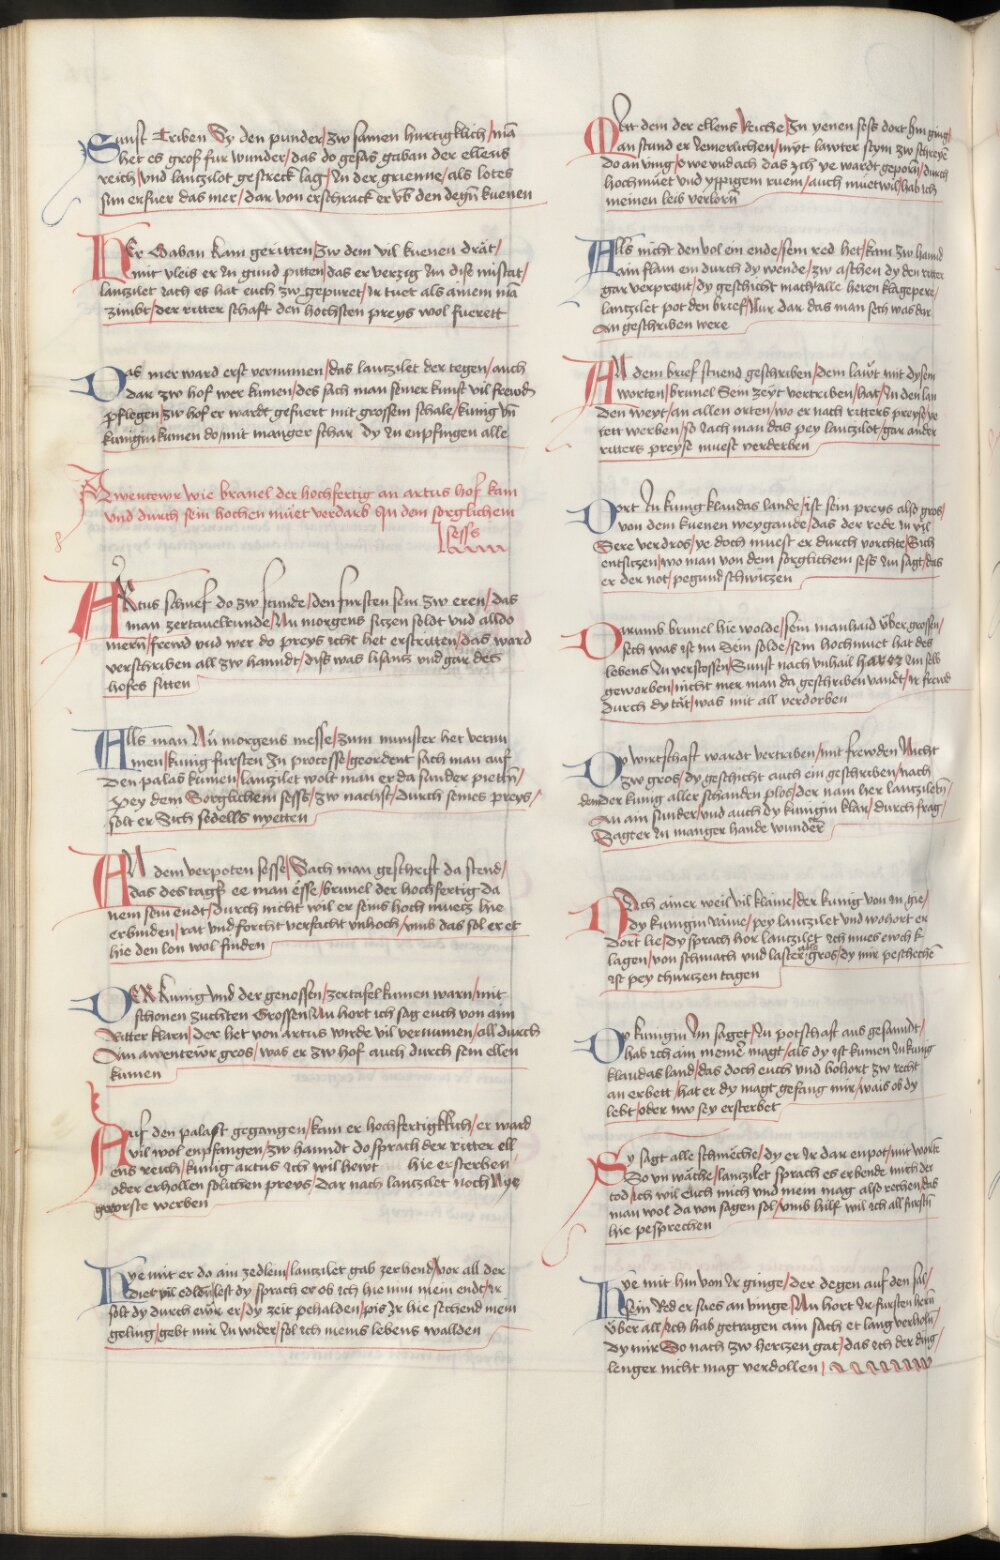 Sunst Triben Sy den punder/zw samen hurtigklich/mā
her es groß fur wunder/das do gesäs gaban der ellens
reich/vnd lantzilot gestreckt lag/Jn der grienne/als lotes
sun erfuer das mer/dar von erschrack er vō den degñ kuenen
HEr Gaban kam geritten/zw dem vil kuenen drät/
mit vleis er Jn gund pitten/das er verzig Jm dise missetat/
lantzilet iach es hat euch zw gepuret/Ir tuet als ainem mā
zimbt/der ritterschaft den hochsten preys wol fuerett
Das mer ward erst vernumen/das lantzilet der tegen/auch
dar zw hof wer kumen/des sach man seiner kunst vil frewdñ
pflegen/zw hof er wardt gefuert mit grossem schale/kunig vñ
kunigin kumen do/mit manger schar dy Jn enpfingen alle
Awentewr wie brunel der hochfertig an artus hof kam
vnd durch sein hochen müet verdarb Jn dem sorglichem
sess
ARtus schuef do zw stunde/den fursten sein zw eren/das
man zertauelrunde/An morgens sitzen soldt vnd alldo
mern/frewd vnd wer do preys icht het erstritten/das ward
verschriben all zw hanndt/diss was lisanz vnd gar des
hofes sitten
Alls man Nu morgens messe/zum munster het vernu
men/kunig fursten Jn processe/geordent sach man auf
den palas kumen/lantzilet wolt man er da sunder pietñ/
pey dem Sorglichem sess/zw nachst/durch seines preys/
solt er Sich sedells nyetten
AN dem verpoten sesse/Sach man geschrift da stend/
das des tags ee man ësse/brunel der hochfertig da
nem sein endt/durch nicht wil er seins hoch muetz hie
erbinden/rat vnd forcht versacht vnhoch/vmb das sol er et
hie den lon wol finden
DER kunig vnd der genossen/zertafel kumen warn/mit
schonen zuchten Grossen/Nu hort ich sag euch von aim
Ritter klarn/der het von artus wirde vil vernumen/all durch
Ain awentewr gros/was er zw hof auch durch sein ellen
kumen
Auf den palast gegangen/kam er hochfertigklich/er ward
vil wol enpfangen/zw hanndt do sprach der ritter ell
ens reich/kunig artus ich wil hewt hie ersterben
oder erhollen solichen preys/dar nach lantzilet noch Nye
getorste werben
Hye mit er do ain zedlein/lantzilet gab zerhend/vor all der
diet vil edeln/lest dy sprach er ob ich hie nim mein endt/ir
solt dy durch eur er/dy zeit pehalden/pis Ir hie sechend mein
geling/gebt mir Jn wider/sol ich meins lebens wallden
Mit dem der ellens Reiche/Jn yenen sess dort hin ging/
man stund er Jemerlichen/mit lawter stym zw schreyē
do an ving/o we vnd ach das ich ye wardt geporñ/durch
hochmüet vnd yppigem ruem/auch müetwil/hab ich
meinen leib verlorñ
Alls nicht den vol ein ende/sein red het/kam zw hannd
ain flam ein durch dy wende/zw aschen dy den ritter
gar verprant/dy geschicht macht alle heren klagepere/
lantzilet pot den brief/Nur dar das man sech was dar
An geschriben were
AN dem brief stuend geschriben/dem laut mit dysen
worten/brunel Sein zeyt vertriben/hat/Jn den lan
den weyt/an allen orten/wo er nach ritters preyse ye
rett werben/so iach man das pey lantzilot/gar ander
ritters preyse muest verderben
Dort Jn kunig klaudas lande/ist sein preys also gros/
von dem kuenen weygande/das der rede in vil
Sere verdros/ye doch muest er durch vorchte/Sich
entsitzen/wo man von dem sorglichem sess Jm sagt/das
er der not/pegund schwitzen
Darumb brunel hie wolde/sein manhaid über grossen/
sech was ist im dem solde/sein hochmuet hat des
lebens Jn verstossen/Sunst nach vnhail hat er Jm selb
geworben/nicht mer man da geschriben vandt/ir frewd
durch dy tät/was mit all verdorben
Dy wirtschaft wardt vertriben/mit frewden Nicht
zw gros/dy geschicht auch ein geschriben/nach
dem der kunig aller schanden plos/der nam her lantzileñ/
An ain sunder/vnd auch dy kunigin klar/durch frag/
Sagt er Jn manger hande wunder
NAch ainer weil vil klaine/der kunig von in gie/
dy kunigin vaine/pey lantzilet vnd wohort er
dort lie/dy sprach hor lantzilet ich mues ewch k
lagen/von schmach vnd laster also gros/dy mir peschechē
ist pey churtzen tagen
Dy kunigin Jm saget/Jn potschaft aus gesanndt/
hab ich ain meine magt/als dy ist kumen Jn kunig
klaudas land/das doch euch vnd bohort zw recht
an erbett/hat er dy magt gefang mir/wais ob dy
lebt/oder nw sey ersterbet
Sy sagt alle schmëche/dy er ir dar enpot/mit worte
So vn wäche/lantzilet sprach es erbende mich der
tod/ich wil Euch mich vnd mein mag also rechen/das
man wol da von sagen sol/vmb hilf wil ich all furstñ
hie pesprechen
Hye mit hin von Ir ginge/der degen auf den sal/
Sein Red er sues an vinge/Nu hort Ir fursten herñ
über all/ich hab getragen ain sach et lang verholñ/
dy mir So nach zw hertzen gat/das ich der ding/
lenger nicht mag verdollen